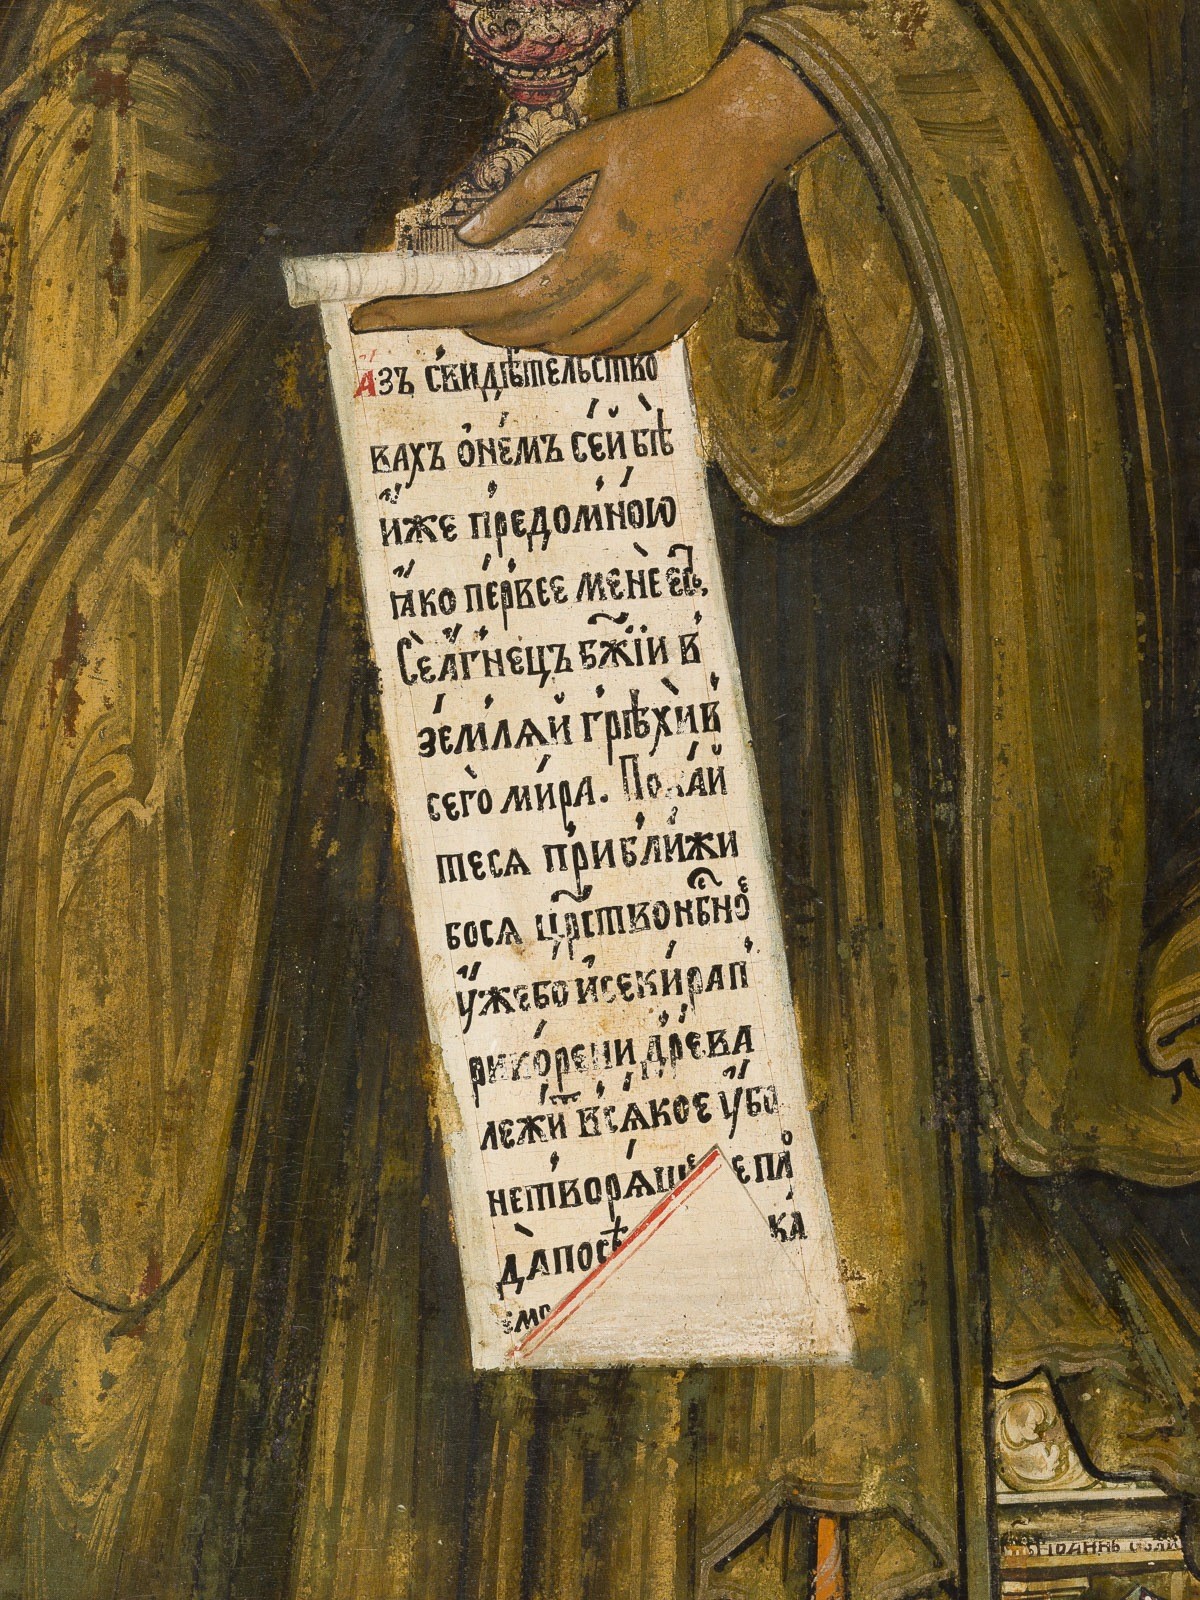 А҆́зъ свидѣ́тельство
вахъ ѻ҆не́мъ се́й бѣ̀
и҆́же предомно́ю
ꙗ҆́ко пе́рвее менѐ е҆с́ть,
Сѐа҆́гнецъ бж҃їи в
зе́млѧй грѣхѝ в
сегѡ̀ ми́ра. Пока́й
тесѧ прибли́жи
босѧ црⷭ҇тво нбⷭ҇ное
у҆́жебо и҆секи́ра п
рико́рени дре́ва
лежи́т всѧ́кое у҆́бо
нетворѧ́щ е пло
дапосѣ ка
емо
Иоаннъ